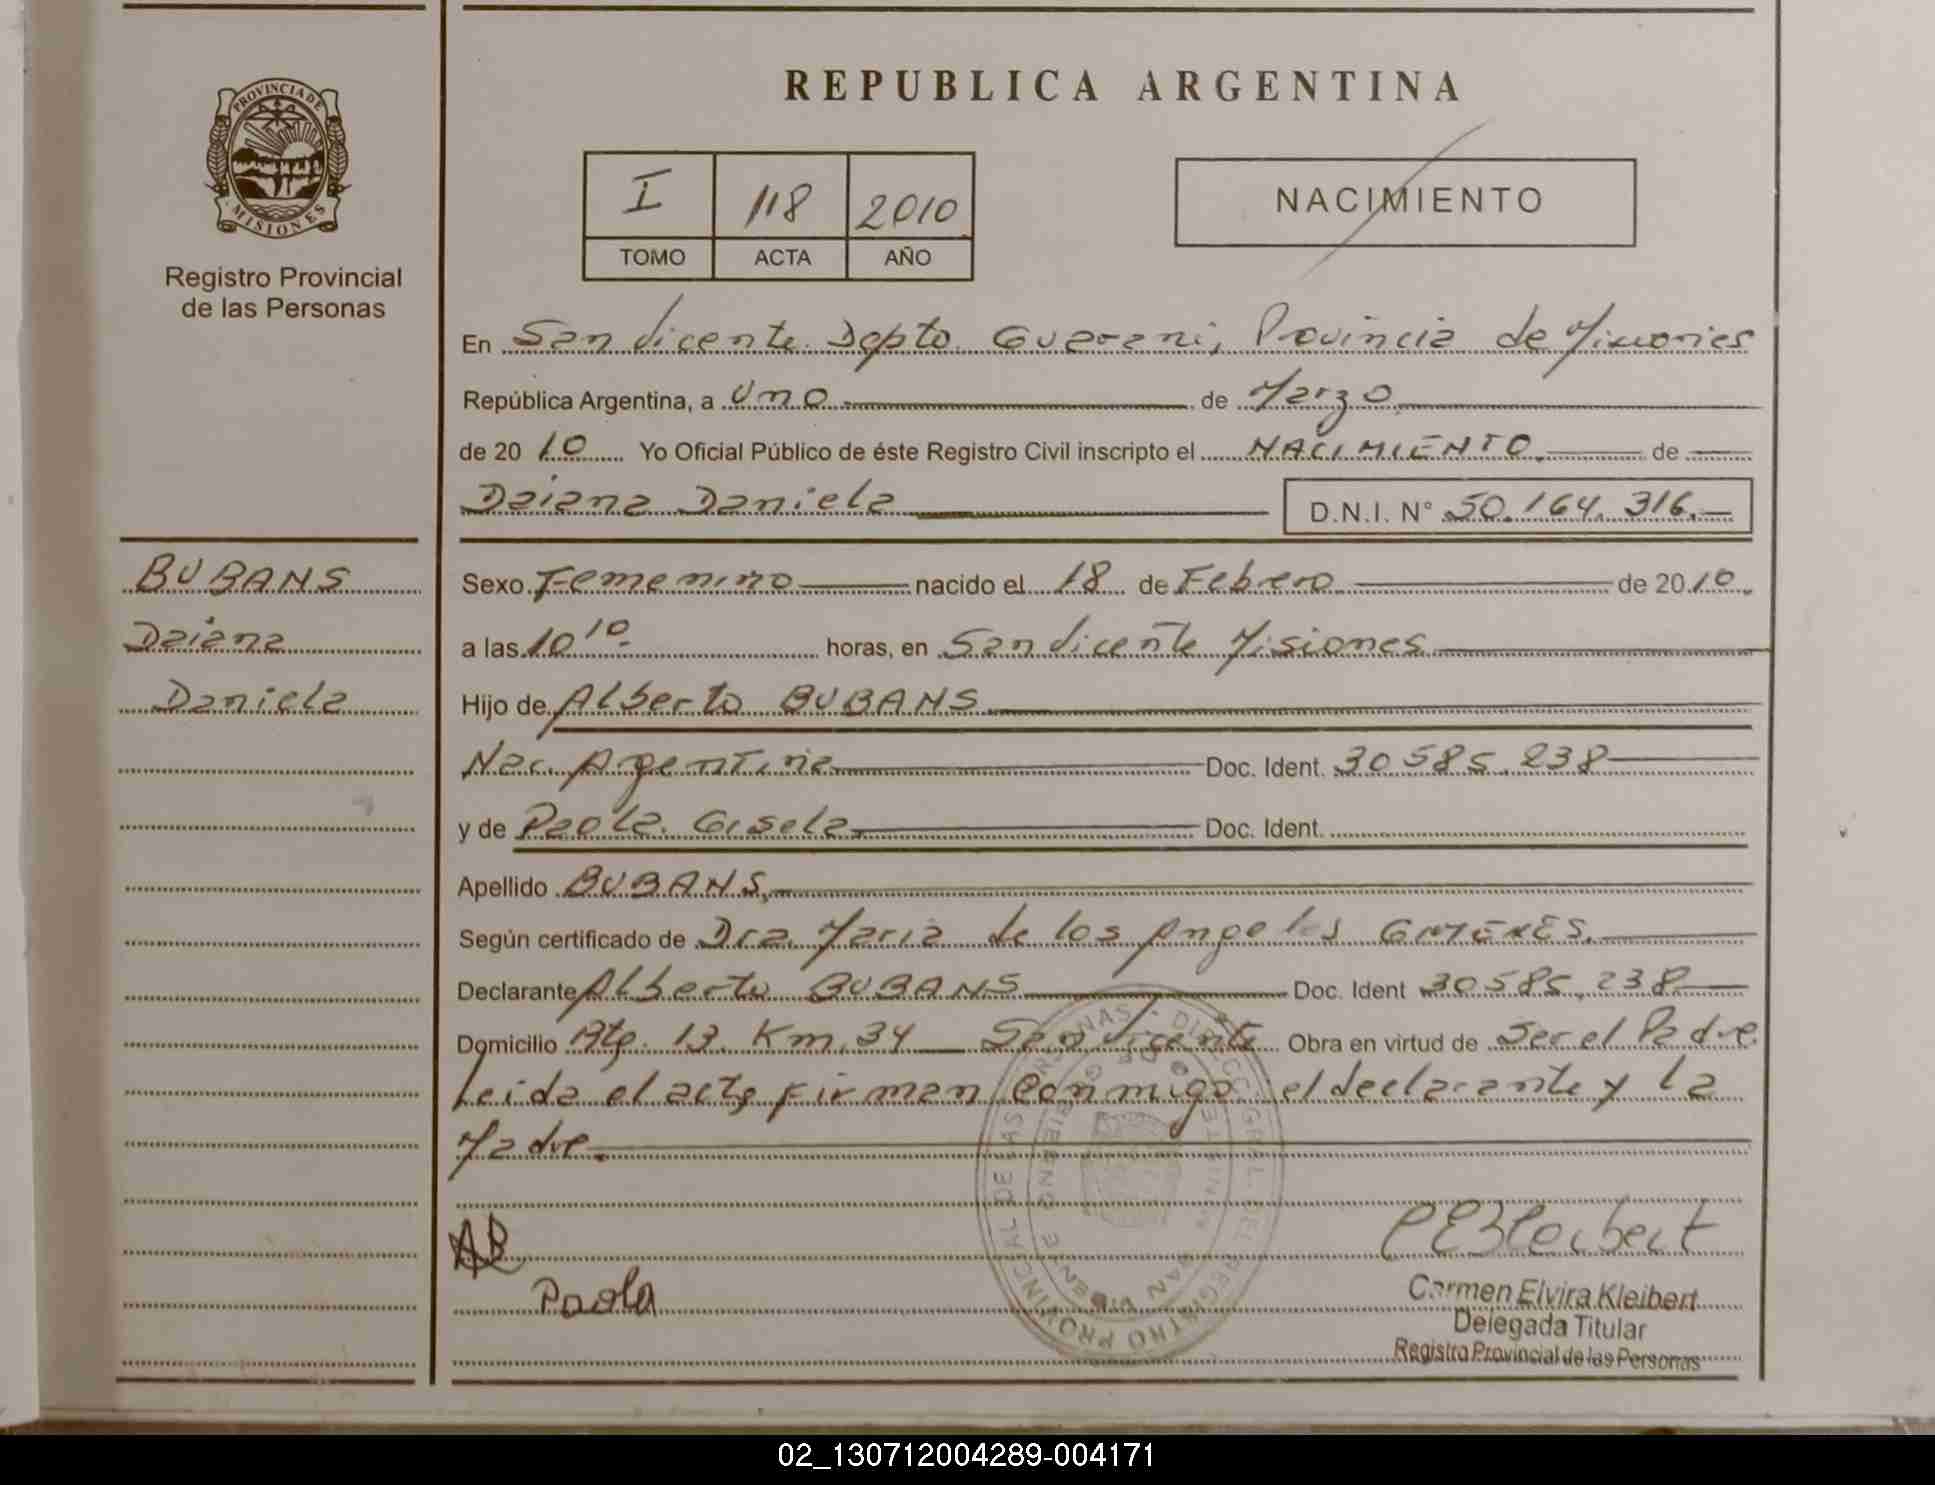 REPUBLICA ARGENTINA
PROVINCIA DE MISIONES
Registro Provincial
de las Personas
I 118 2010
TOMO ACTA AÑO
NACIMIENTO
En San Vicente Depto. Guarani, Provincia de Misiones
República Argentina, a Uno de Marzo
de 2010 Yo Oficial Público de éste Registro Civil inscripto el NACIMIENTO. de
Daiana Daniela D.N.I. N° 50.164.316.-
BUBANS
Daiana
Daniela
Sexo Femenino nacido el 18 de Febrero de 2010
a las 10 10 horas, en San Vicente Misiones
Hijo de Alberto BUBANS
Nac. Argentina Doc. Ident. 30585.238
y de Paola Gisela Doc. Ident.
Apellido BUBANS
Según certificado de Dra. Maria de los Angeles
Declarante Alberto BUBANS Doc. Ident 30585.238
Domicilio Km. 34 San Vicente Obra en virtud de Ser el Padre
Leida el acta firman conmigo el declarante y la
Madre.
AB
Paola
Carmen Elvira Kleibert
Delegada Titular
Registro Provincial de las Personas
02_130712004289-004171